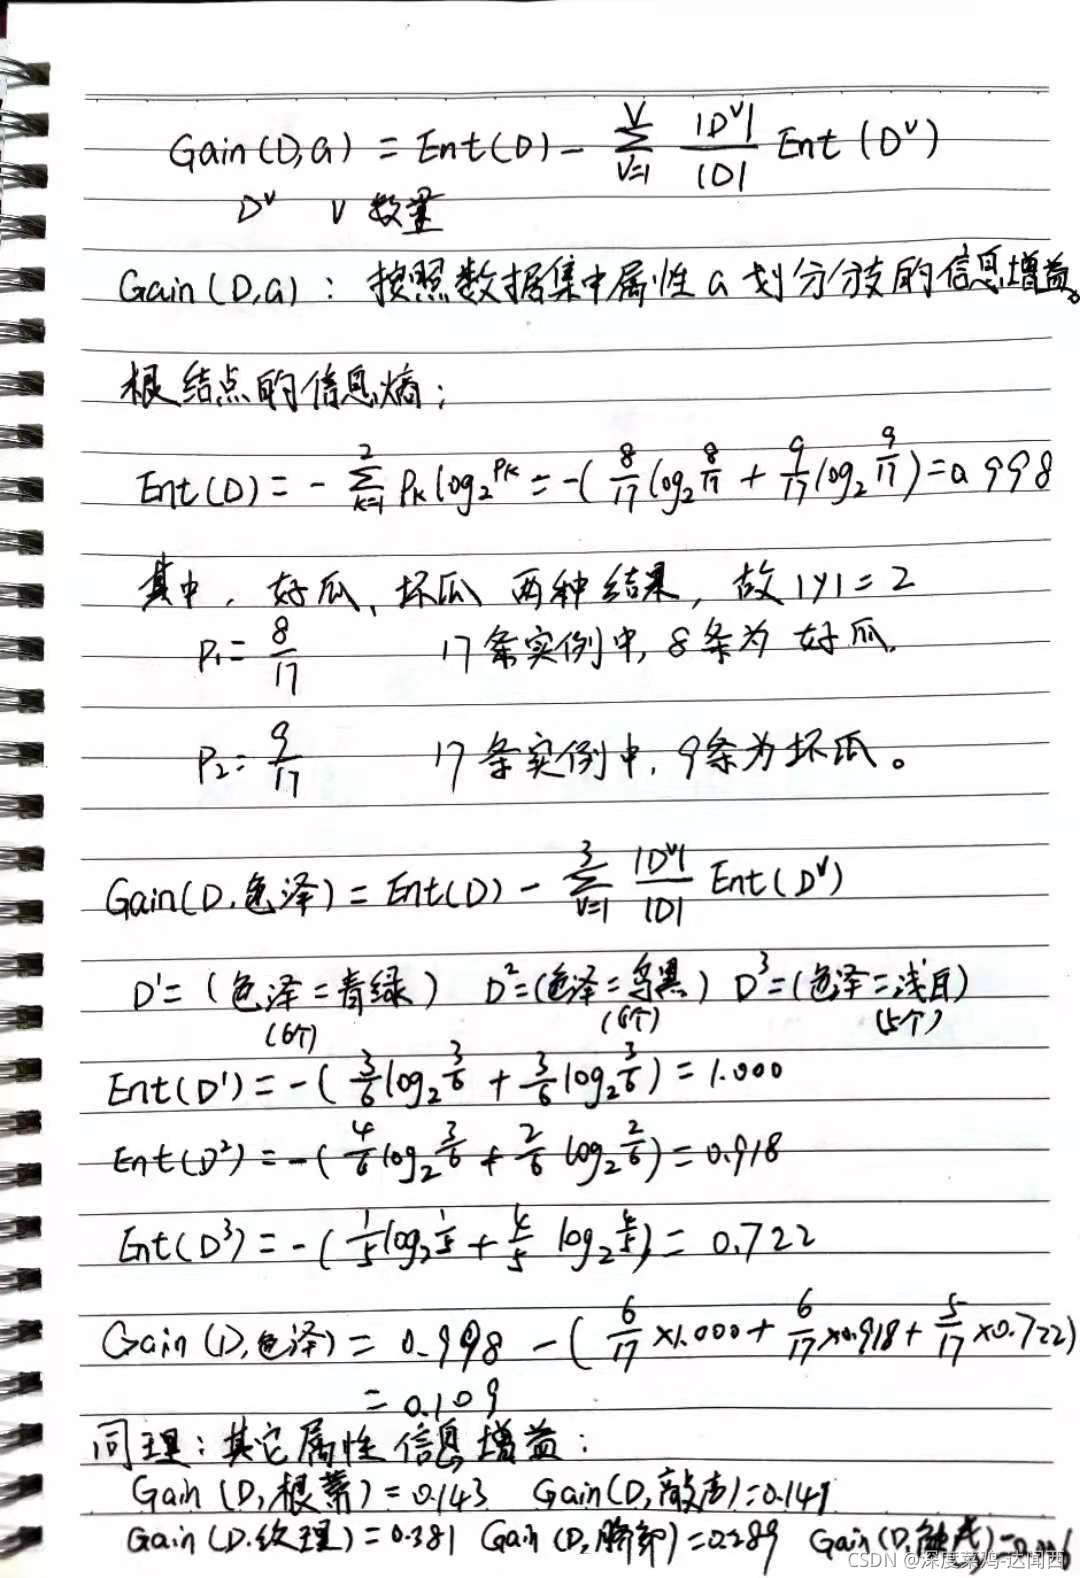 Gain(D,a) = Ent(D) - ∑_{v=1}^{V} |D^v|/|D| Ent(D^v)
D^v V 数量
Gain(D,a): 按照数据集中属性a划分分支的信息增益。
根结点的信息熵:
Ent(D) = - ∑_{k=1}^{2} P_k log_2 P_k = -( 8/17 log_2 8/17 + 9/17 log_2 9/17 ) = 0.998
其中, 好瓜、坏瓜 两种结果, 故 |y| = 2
P_1 = 8/17 17条实例中, 8条为好瓜.
P_2 = 9/17 17条实例中, 9条为坏瓜。
Gain(D,色泽) = Ent(D) - ∑_{v=1}^{3} |D^v|/|D| Ent(D^v)
D^1 = (色泽=青绿) D^2 = (色泽=乌黑) D^3 = (色泽=浅白)
(6个) (6个) (5个)
Ent(D^1) = -( 3/6 log_2 3/6 + 3/6 log_2 3/6 ) = 1.000
Ent(D^2) = -( 4/6 log_2 3/6 + 2/6 log_2 2/6 ) = 0.918
Ent(D^3) = -( 1/5 log_2 1/5 + 4/5 log_2 4/5 ) = 0.722
Gain(D,色泽) = 0.998 - ( 6/17 ×1.000 + 6/17 ×0.918 + 5/17 ×0.722 )
= 0.109
同理: 其它属性信息增益:
Gain(D,根蒂) = 0.143 Gain(D,敲声) = 0.141
Gain(D.纹理) = 0.381 Gain(D,脐部) = 0.289 Gain(D,触感) = 0.006
CSDN @深度菜鸡-达闻西